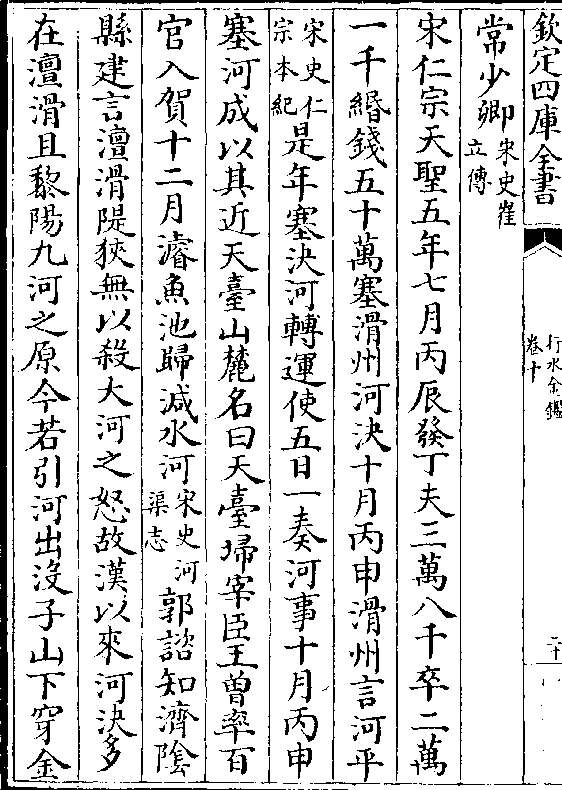 欽定四庫全書
行水金鑑
卷十
二十
常少卿宋史崔
立傳
宋仁宗天聖五年七月丙辰發丁夫三萬八千卒二萬
一千緡錢五十萬塞滑州河決十月丙申滑州言河平
宋史仁
宗本紀是年塞決河轉運使五日一奏河事十月丙申
塞河成以其近天臺山麓名曰天臺埽宰臣王曾率百
官入賀十二月濬魚池歸減水河宋史河
渠志郭諮知濟陰
縣建言澶滑隄狹無以殺大河之怒故漢以來河決多
在澶滑且黎陽九河之原今若引河出沒子山下穿金